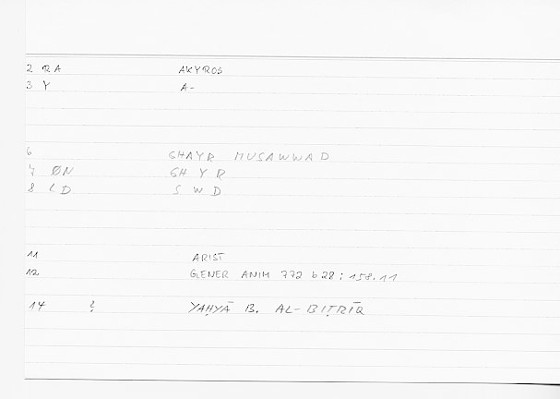 2 RA AKYROS
3 Y A-
6 GHAYR MUSAWWAD
7 ØN GH Y R
8 LD S W D
11 ARIST
12 GENER ANIM 772 b 28 : 158.11
14 YAḤYĀ B. AL-BIṬRĪQ